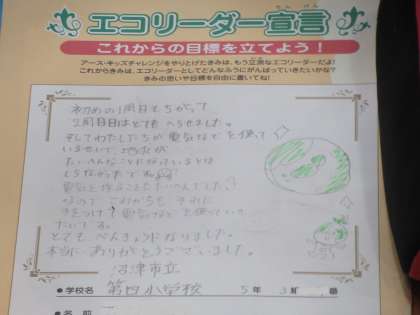 エコリーダー宣言
せんげん
これからの目標を立てよう！
アース・キッズチャレンジをやりとげたきみは、もう立派なエコリーダーだよ！
これからきみは、エコリーダーとしてどんなふうにがんばっていきたいかな？
きみの思いや目標を自由に書いてね！
初めの1周目とちがって
2周目目はどを へらせました。
そしてわたしたちが電気などを使って
いませいで、地球が
たいへんなことになっているとは
しらなかったで
電気を作ることもたいへんでした
なのでこれからも
気をつけて電気などを使っていき
たいです。
とてもべんきょうになりました。
本当にありがとうございました。
沼津市立
●学校名 第四小学校 5年 3 組
●名前